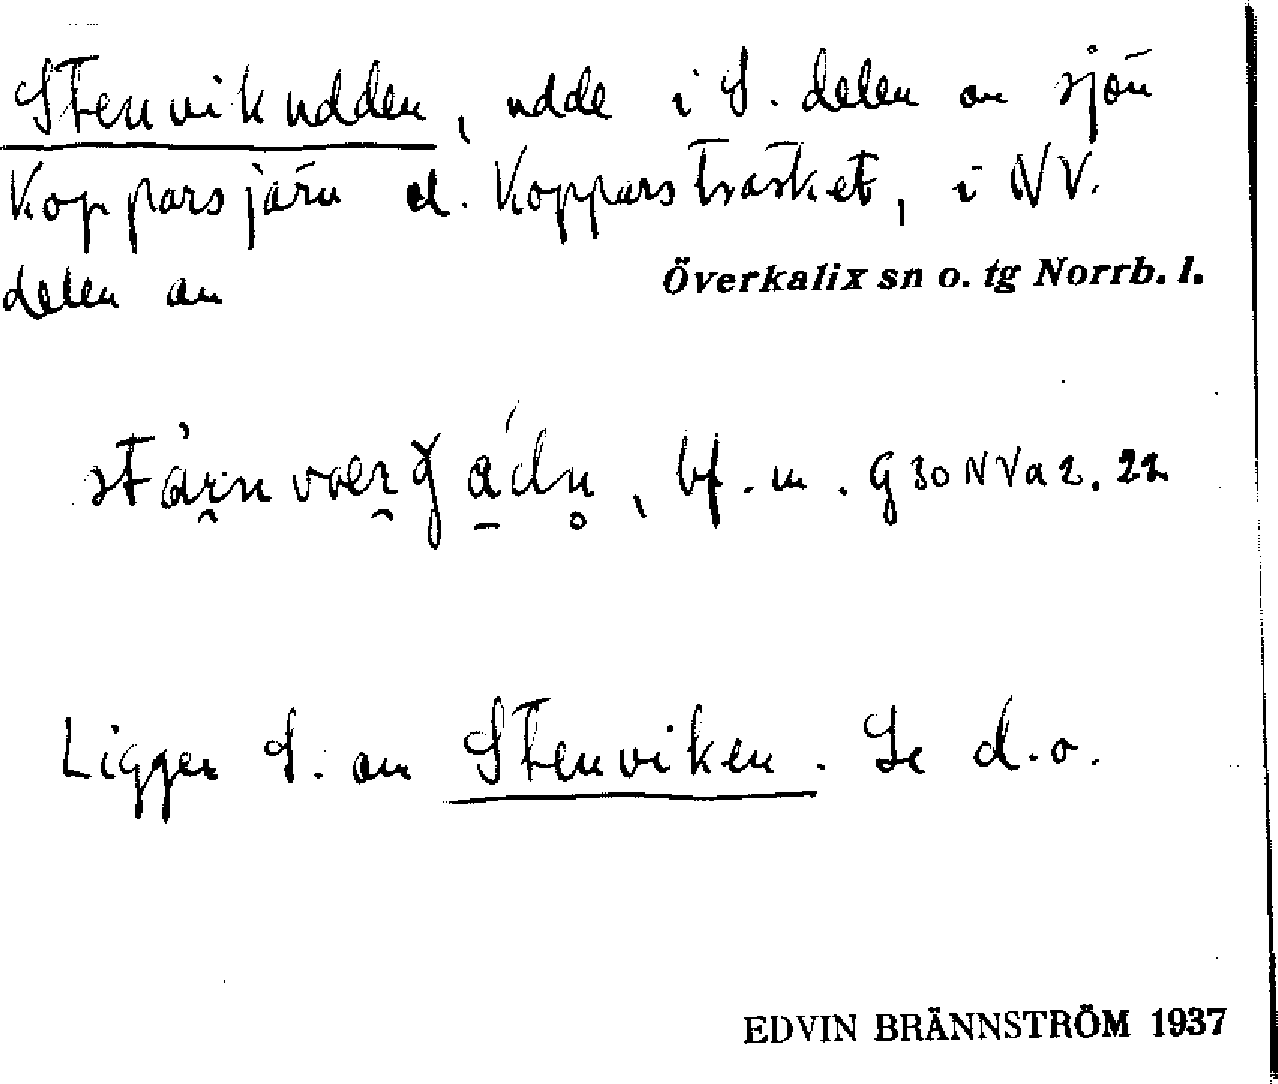 Stenvikudden, udde i S. delen av sjön
Kopparsjärv el. Kopparsträsket, i NV.
delen av Överkalix sn o. tg Norrb. l.
bf. m. G 30 NV a 2. 22
Ligger S. av Stenviken. Se d.o.
EDVIN BRÄNNSTRÖM 1937